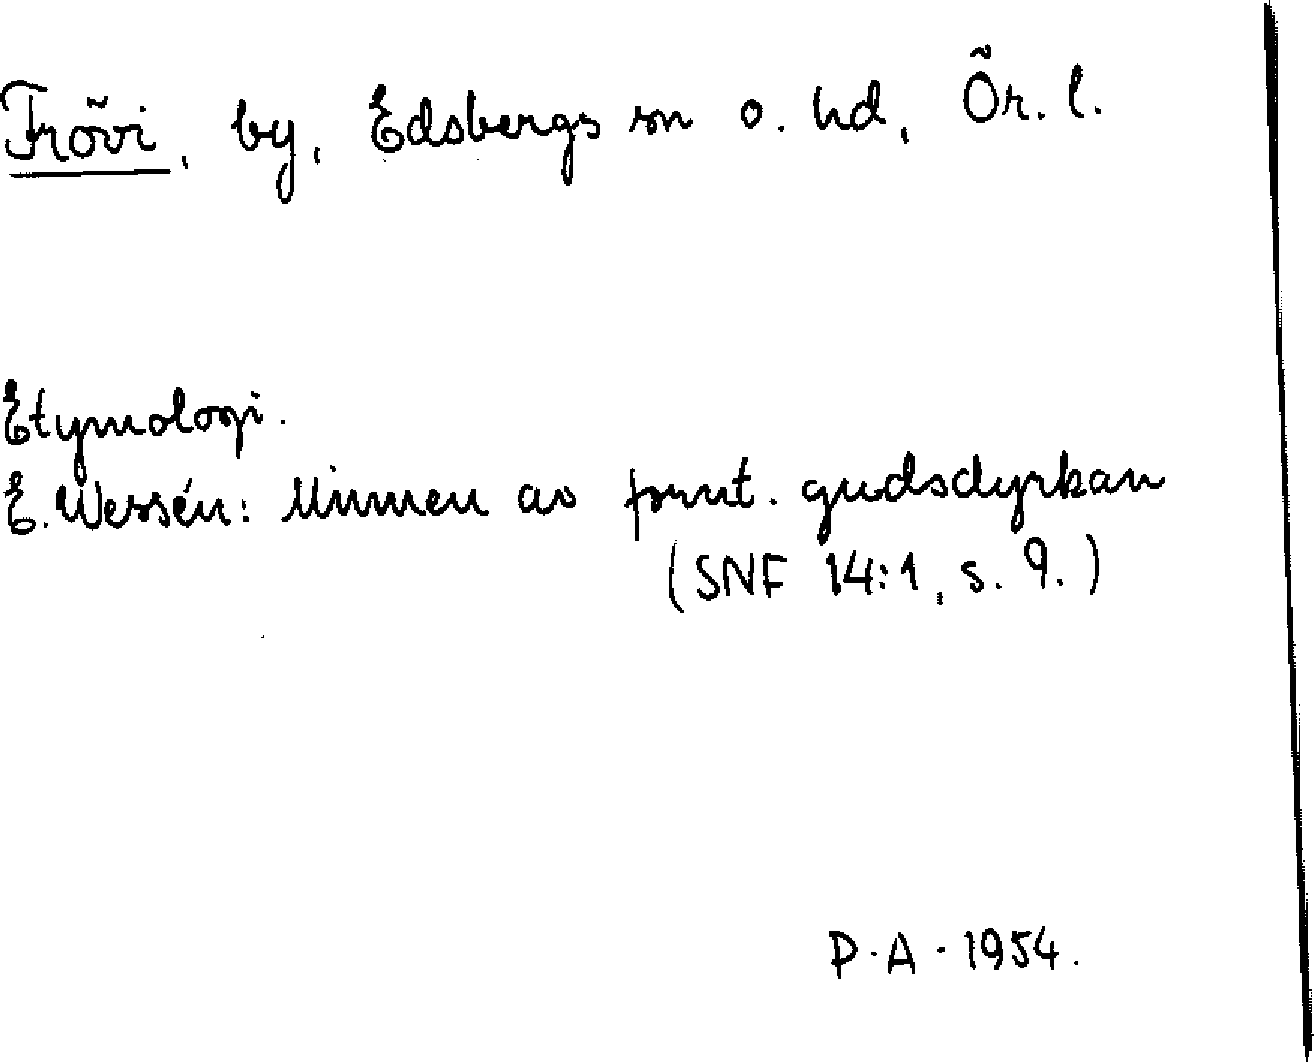 Frövi, by, Edsbergs sn o. hd, Ör. l.
Etymologi.
E. Wessén: Minnen av fornt. gudsdyrkan
(SNF 14:1, s. 9.)
P.A. 1954.